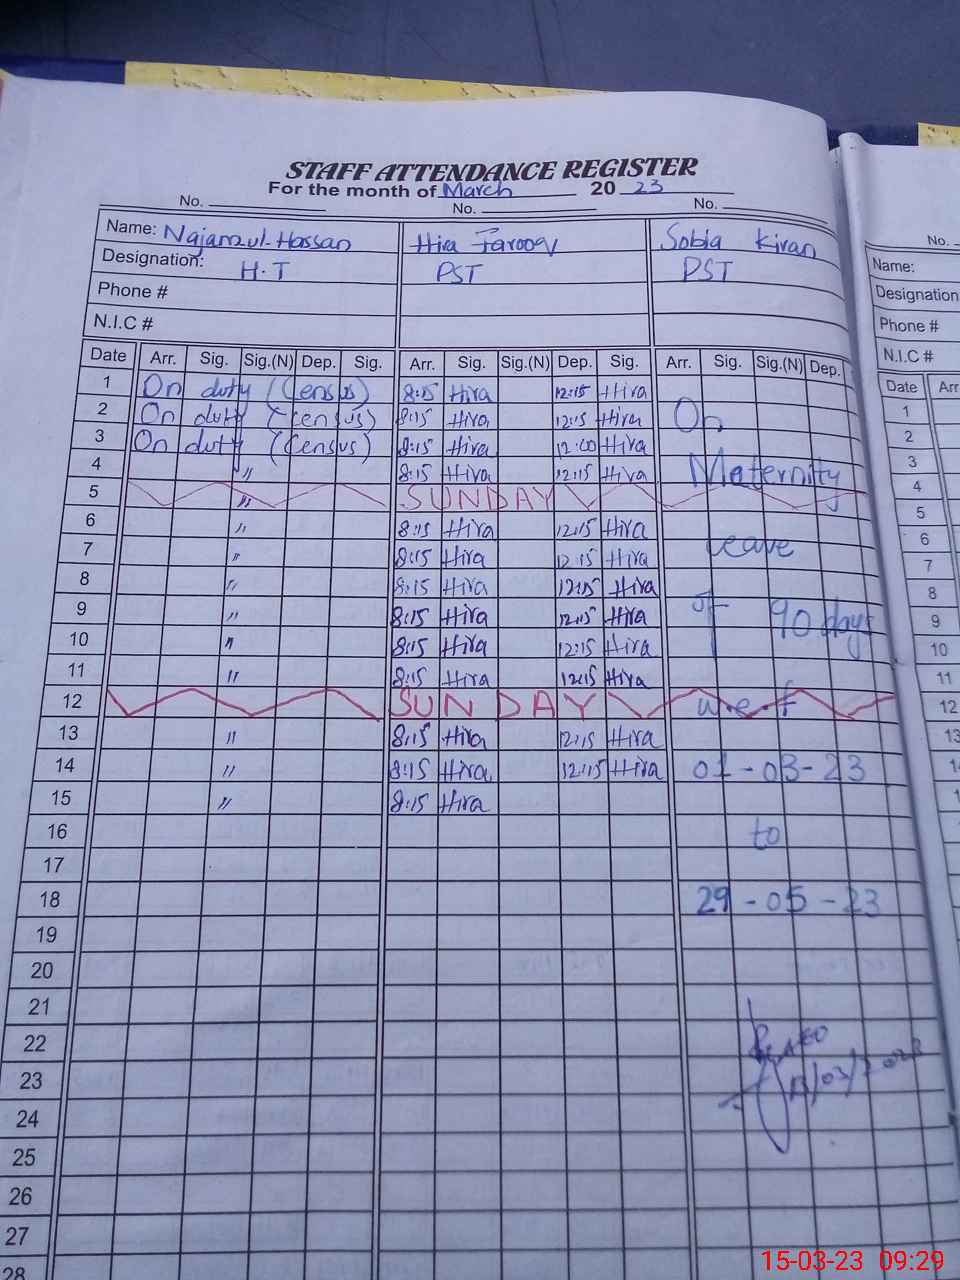 STAFF ATTENDANCE REGISTER
For the month of March 20 23
No. No. No.
Name: Najam-ul-Hassan Hira Farooq Sobia Kiran
Designation: H.T PST PST
Phone #
N.I.C #
Date Arr. Sig. Sig.(N) Dep. Sig. Arr. Sig. Sig.(N) Dep. Sig. Arr. Sig. Sig.(N) Dep.
1 On duty (Census) 8:15 Hira 12:15 Hira
2 On duty (Census) 8:15 Hira 12:15 Hira On
3 On duty (Census) 8:15 Hira 12:00 Hira
4 " 8:15 Hira 12:15 Hira Maternity
5 " SUNDAY
6 " 8:15 Hira 12:15 Hira
7 " 8:15 Hira 12:15 Hira leave
8 " 8:15 Hira 12:15 Hira
9 " 8:15 Hira 12:15 Hira of 90 days
10 " 8:15 Hira 12:15 Hira
11 " 8:15 Hira 12:15 Hira
12 SUNDAY w.e.f
13 " 8:15 Hira 12:15 Hira
14 " 8:15 Hira 12:15 Hira 01-03-23
15 " 8:15 Hira
16 to
17
18 29-05-23
19
20
21
22 AEO
23 /03/2023
24
25
26
27
28
No.
Name:
Designation
Phone #
N.I.C #
Date Arr
1
2
3
4
5
6
7
8
9
10
11
12
13
15-03-23 09:29